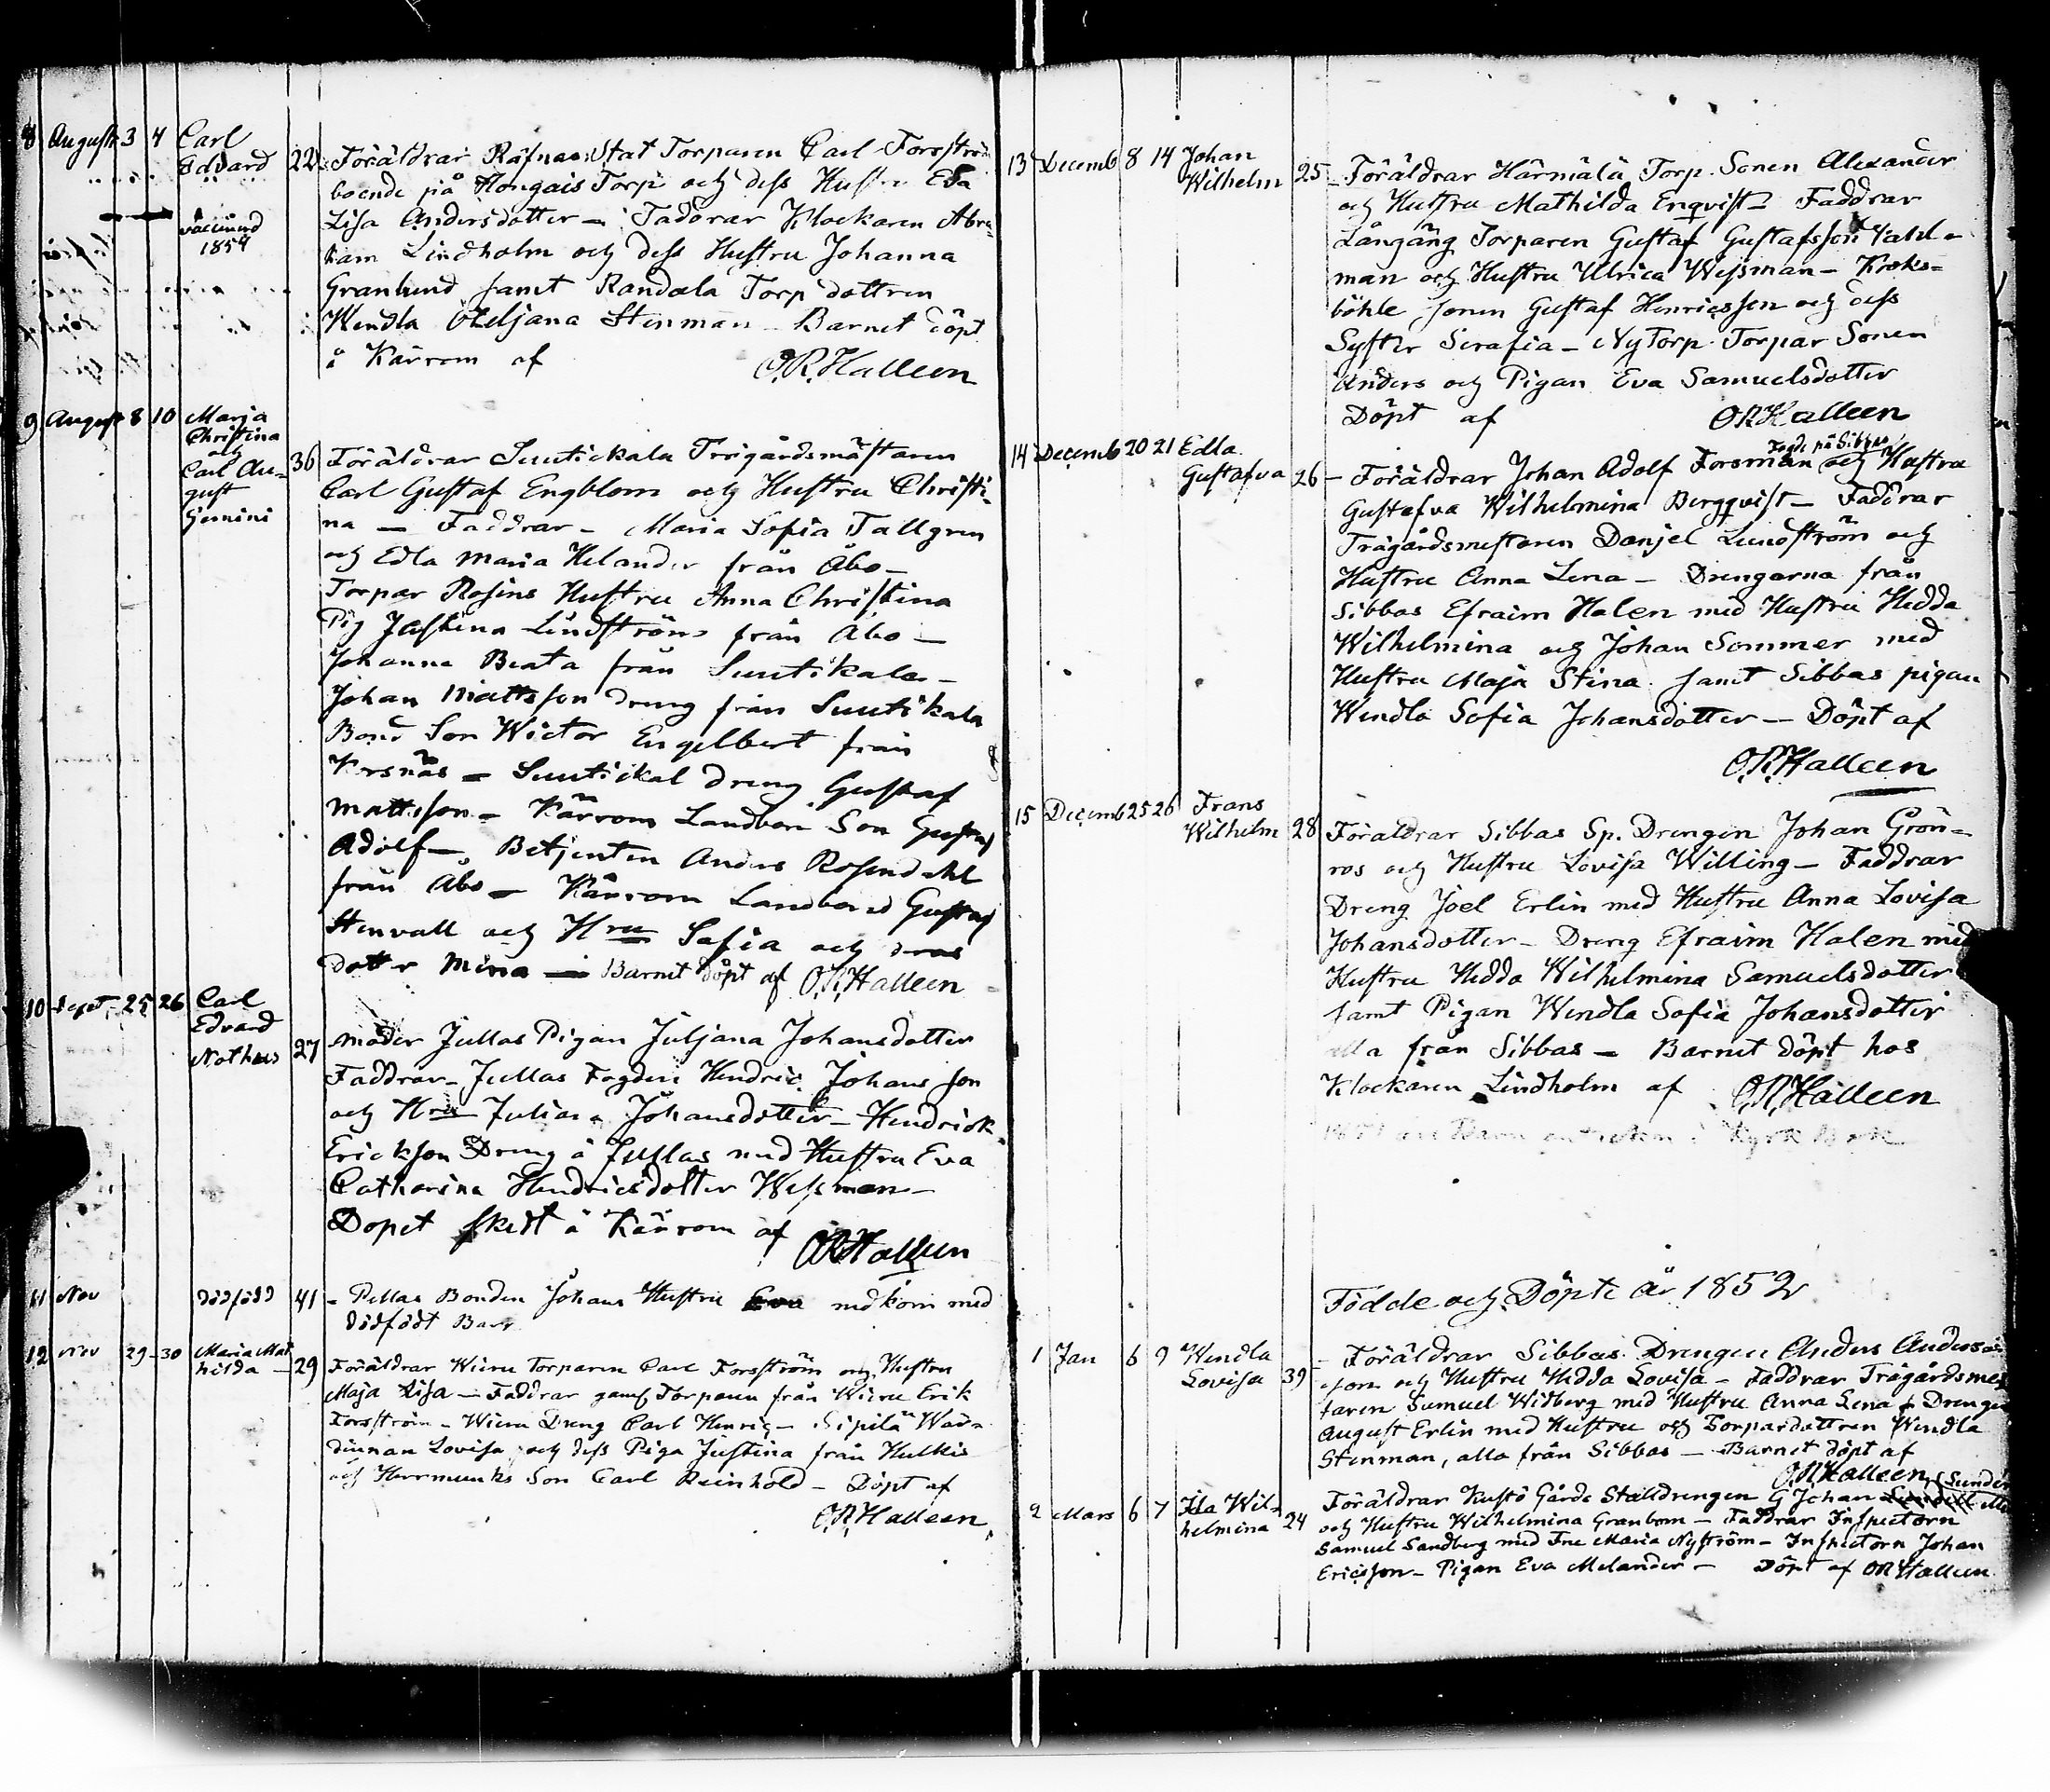 8 August 3 4 Carl
Edvard 22 Föräldrar Räfnäs Stat Torparen Carl Forsström
boende på Kongais Torp och dess Hustru Eva
Lisa Andersdotter – Faddrar Klockaren Abra-
vaccinerad
1854
ham Lindholm och dess Hustru Johanna
Granlund samt Randala Torp dottren
Wendla Stenman – Barnet döpt
å Kärrom af O.R. Halleen
9 August 8 10 Maria
Christina
och
Carl Au-
gust
Gemini
36 Föräldrar Suutickala Trägårdsmästaren
Carl Gustaf Engblom och Hustru Christi-
na – Faddrar – Maria Sofia Tallgren
och Edla Maria Helander från Åbo –
Torpar Rosins Hustru Anna Christina
Pig Justina Lindström från Åbo –
Johanna Beata från Suutikala –
Johan Mattsson dreng från Suutikala
Bond Son Wictor Engelbert från
Korsnäs – Suutickal dreng Gustaf
Mattsson – Kärrom Landbon Son Gustaf
Adolf – Betjenten Anders Rosendahl
från Åbo – Kärrom Landbond Gustaf
Stenvall och Hru Sofia och deras
dotter Mina – Barnet döpt af O.R. Halleen
10 Sept. 25 26 Carl
Edvard
Nothus 27 Moder Jullas Pigan Juljana Johansdotter
Faddrar – Jullas Fogden Hendric Johansson
och Hru Juliana Johansdotter – Hendrick
Erickson Dreng å Jullas med Hustru Eva
Catharina Hendricsdotter Wessman –
Dopet skedt å Kärrom af
O.R. Halleen
11 Nov dödfödd 41 – Pellas Bonden Johans Hustru Eva nedkom med
dödfödt Barn
12 Nov 29 – 30 Maria Mat
hilda – 29 Föräldrar Wieru Torparen Carl Forsström och Hustru
Maja Lisa – Faddrar gaml Torparen från Wieru Erik
Forsström – Wieru Dreng Carl Henric – Sipilä Wär-
dinnan Lovisa och dess Piga Justina från Hulkis
och Herrmunks Son Carl Reinhold – Döpt af
O.R. Halleen
13 Decemb 8 14 Johan
Wilhelm 25 – Föräldrar Härmälä Torp. Sonen Alexander
och Hustru Mathilda Enqvist – Faddrar
Långäng Torparen Gustaf Gustafsson Wahl-
man och Hustru Ulrica Wessman – Kroks-
böhle sonen Gustaf Henricsson och dess
Syster Serafia – Ny Torp Torpar Sonen
Anders och Pigan Eva Samuelsdotter
Döpt af O.R. Halleen
14 Decemb 20 21 Edla
Gustafva 26 – Föräldrar Johan Adolf Forsman Fogde på Sibbas och Hustru
Gustafva Wilhelmina Bergqvist – Faddrar
Trägårdsmestaren Danjel Lundström och
Hustru Anna Lena – Drengarna från
Sibbas Efraim Halen med Hustru Hedda
Wilhelmina och Johan Sommer med
Hustru Maja Stina samt Sibbas pigan
Wendla Sofia Johansdotter – Döpt af
O.R. Halleen
15 Decemb 25 26 Frans
Wilhelm 28 Föräldrar Sibbas Sp. Drengen Johan Grön-
ros och Hustru Lovisa Willing – Faddrar
Dreng Joel Erlin med Hustru Anna Lovisa
Johansdotter – Dreng Efraim Halen med
Hustru Hedda Wilhelmina Samuelsdotter
samt Pigan Wendla Sofia Johansdotter
alla från Sibbas – Barnet döpt hos
Klockaren Lindholm af O.R. Halleen
Födde och Döpte år 1852
1 Jan 6 9 Wendla
Lovisa 39 – Föräldrar Sibbas Drengen Anders Anders
son och Hustru Hedda Lovisa – Faddrar Trägårdsmes
taren Samuel Widberg med Hustru Anna Lena – Drengen
August Erlin med Hustru och Torpardottren Wendla
Stenman, alla från Sibbas – Barnet döpt af
O.R. Halleen
2 Mars 6 7 Ida Wil-
helmina 24 Föräldrar Kustö Gårds Stalldrengen G Johan
och Hustru Wilhelmina Granbom – Faddrar Inspectorn
Samuel Sandberg med Fru Maria Nyström – Inspectorn Johan
Ericsson – Pigan Eva Melander – Döpt af O.R. Halleen